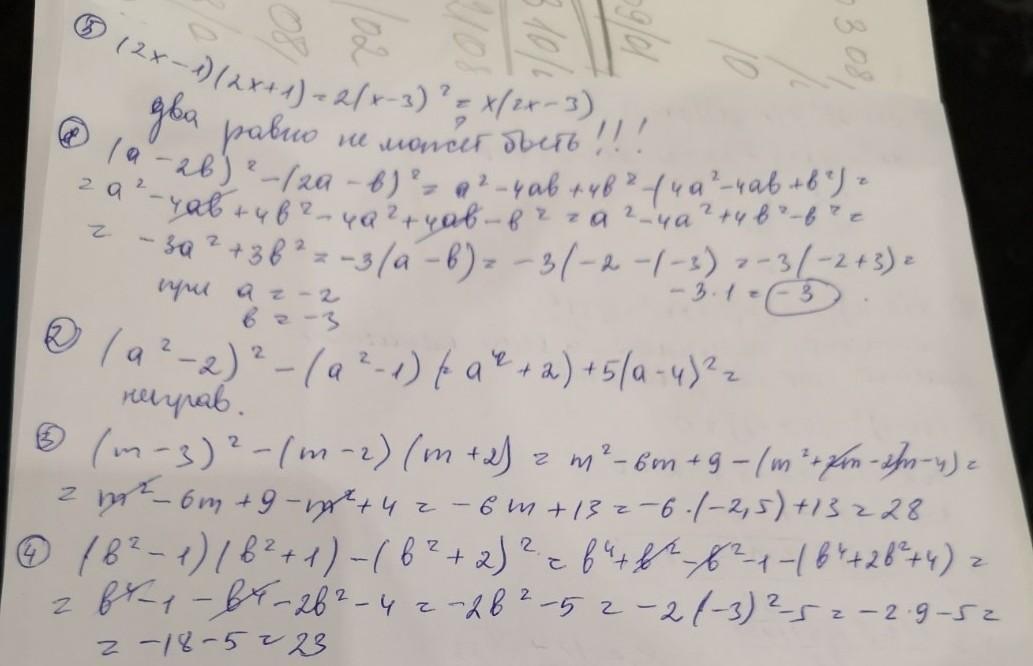 ⑤ (2x-1)(2x+1) = 2(x-3)² = x(2x-3)
?
два равно не может быть!!!
① (a-2b)² - (2a-b)² = a² - 4ab + 4b² - (4a² - 4ab + b²) =
= a² - 4ab + 4b² - 4a² + 4ab - b² = a² - 4a² + 4b² - b² =
= -3a² + 3b² = -3(a-b) = -3(-2-(-3) = -3(-2+3) =
при a = -2 -3·1 = -3
b = -3
② (a²-2)² - (a²-1)(-a²+2) + 5(a-4)² =
неправ.
③ (m-3)² - (m-2)(m+2) = m² - 6m + 9 - (m² + 2m - 2m - 4) =
= m² - 6m + 9 - m² + 4 = -6m + 13 = -6·(-2,5) + 13 = 28
④ (b²-1)(b²+1) - (b²+2)² = b⁴ + b² - b² - 1 - (b⁴ + 2b² + 4) =
= b⁴ - 1 - b⁴ - 2b² - 4 = -2b² - 5 = -2(-3)² - 5 = -2·9 - 5 =
= -18 - 5 = 23